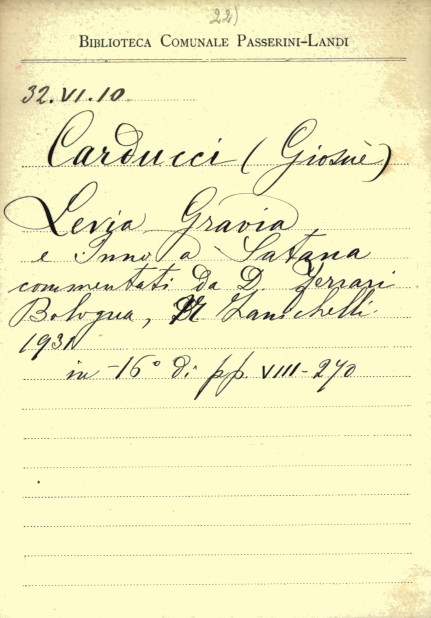 22)
BIBLIOTECA COMUNALE PASSERINI-LANDI
32.VI.10
Carducci (Giosuè)
Levia Gravia
e Inno a Satana
commentati da D. Ferrari
Bologna, N. Zanichelli.
1931
in -16° di pp. VIII-270